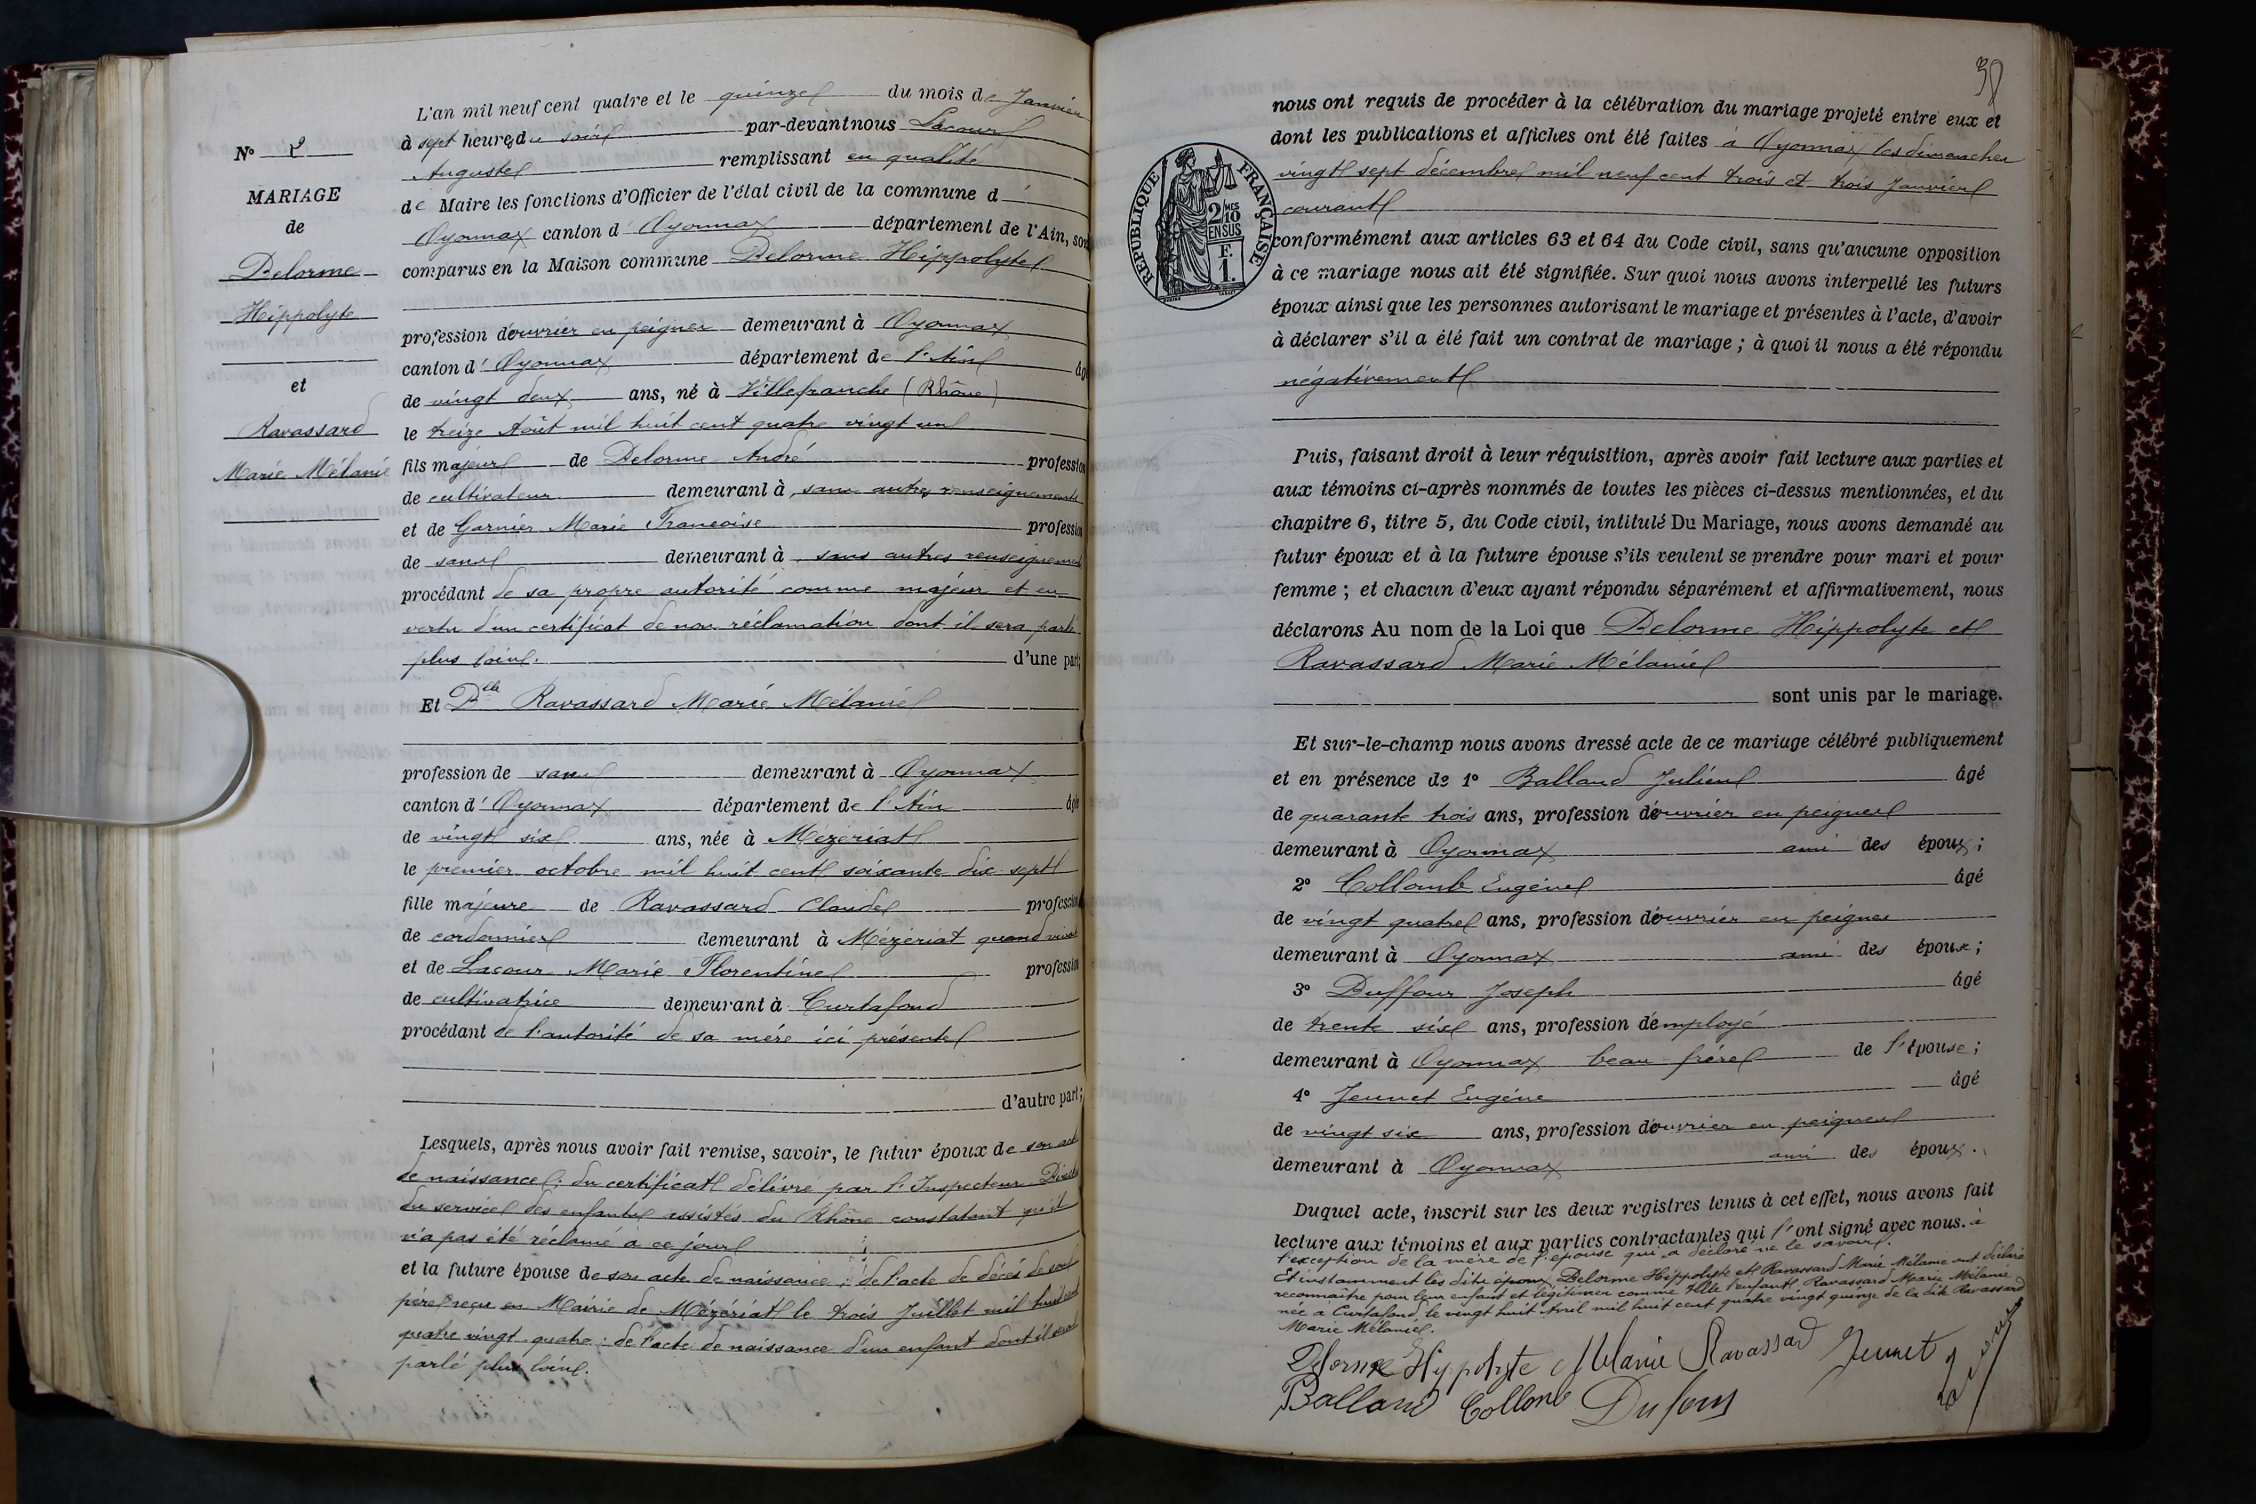 N° 2
MARIAGE
de
Delorme
Hippolyte
et
Ravassard
Marie Mélanie
L'an mil neuf cent quatre et le quinze du mois de Janvier
à sept heures du soir par-devant nous Lacour
Auguste remplissant en qualité
de Maire les fonctions d'Officier de l'état civil de la commune d'
Oyonnax canton d'Oyonnax département de l'Ain, sont
comparus en la Maison commune Delorme Hippolyte
profession d'ouvrier en peignes demeurant à Oyonnax
canton d'Oyonnax département de l'Ain âgé
de vingt deux ans, né à Villefranche (Rhône)
le treize Août mil huit cent quatre vingt un
fils majeur de Delorme André profession
de cultivateur demeurant à sans autres renseignements
et de Garnier Marie Francoise profession
de sans demeurant à sans autres renseignements
procédant de sa propre autorité comme majeur et en
vertu d'un certificat de non réclamation dont il sera parlé
plus loin. d'une part;
Et Dlle Ravassard Marie Mélanie
profession de sans demeurant à Oyonnax
canton d'Oyonnax département de l'Ain âgée
de vingt six ans, née à Mezériat
le premier octobre mil huit cent soixante dix sept
fille majeure de Ravassard Claude profession
de cordonnier demeurant à Mézériat quand vivait
et de Lacour Marie Florentine profession
de cultivatrice demeurant à Curtafond
procédant de l'autorité de sa mère ici présente
d'autre part;
Lesquels, après nous avoir fait remise, savoir, le futur époux de son acte
de naissance; du certificat délivré par l'Inspecteur
du service des enfants assistés du Rhône constatant qu'il
n'a pas été réclamé à ce jour
et la future épouse de son acte de naissance; de l'acte de décès de son
père reçu en Mairie de Mézériat le trois Juillet mil huit cent
quatre vingt quatre; de l'acte de naissance d'un enfant dont il sera
parlé plus loin.
38
REPUBLIQUE FRANÇAISE
2/10
EN SUS
F.
1.
nous ont requis de procéder à la célébration du mariage projeté entre eux et
dont les publications et affiches ont été faites à Oyonnax les dimanches
vingt sept décembre mil neuf cent trois et trois Janvier
courant
conformément aux articles 63 et 64 du Code civil, sans qu'aucune opposition
à ce mariage nous ait été signifiée. Sur quoi nous avons interpellé les futurs
époux ainsi que les personnes autorisant le mariage et présentes à l'acte, d'avoir
à déclarer s'il a été fait un contrat de mariage ; à quoi il nous a été répondu
négativement
Puis, faisant droit à leur réquisition, après avoir fait lecture aux parties et
aux témoins ci-après nommés de toutes les pièces ci-dessus mentionnées, et du
chapitre 6, titre 5, du Code civil, intitulé Du Mariage, nous avons demandé au
futur époux et à la future épouse s'ils veulent se prendre pour mari et pour
femme ; et chacun d'eux ayant répondu séparément et affirmativement, nous
déclarons Au nom de la Loi que Delorme Hippolyte et
Ravassard Marie Mélanie
sont unis par le mariage.
Et sur-le-champ nous avons dressé acte de ce mariage célébré publiquement
et en présence de 1° Balland Julien âgé
de quarante trois ans, profession d'ouvrier en peignes
demeurant à Oyonnax ami des époux;
2° Collomb Eugène âgé
de vingt quatre ans, profession d'ouvrier en peignes
demeurant à Oyonnax ami des époux;
3° Duffour Joseph âgé
de trente six ans, profession d'employé
demeurant à Oyonnax beau frère de l'épouse;
4° Jeunet Eugène âgé
de vingt six ans, profession d'ouvrier en peignes
demeurant à Oyonnax ami des époux.
Duquel acte, inscrit sur les deux registres tenus à cet effet, nous avons fait
lecture aux témoins et aux parties contractantes qui l'ont signé avec nous. à
l'exception de la mère de l'épouse qui a déclaré ne le savoir.
Et instamment les dits époux Delorme Hippolyte et Ravassard Marie Mélanie ont déclaré
reconnaitre pour leur enfant et légitimer comme telle l'enfant Ravassard Marie Mélanie
née à Curtafond le vingt huit Avril mil huit cent quatre vingt quinze de la dite Ravassard
Marie Mélanie.
Delorme Hyppolyte Mélanie Ravassard Jeunet
Balland Collomb Dufour